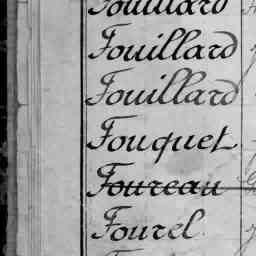 Fouillard
Fouillard
Fouillard
Fouquet
Foureau
Fourel